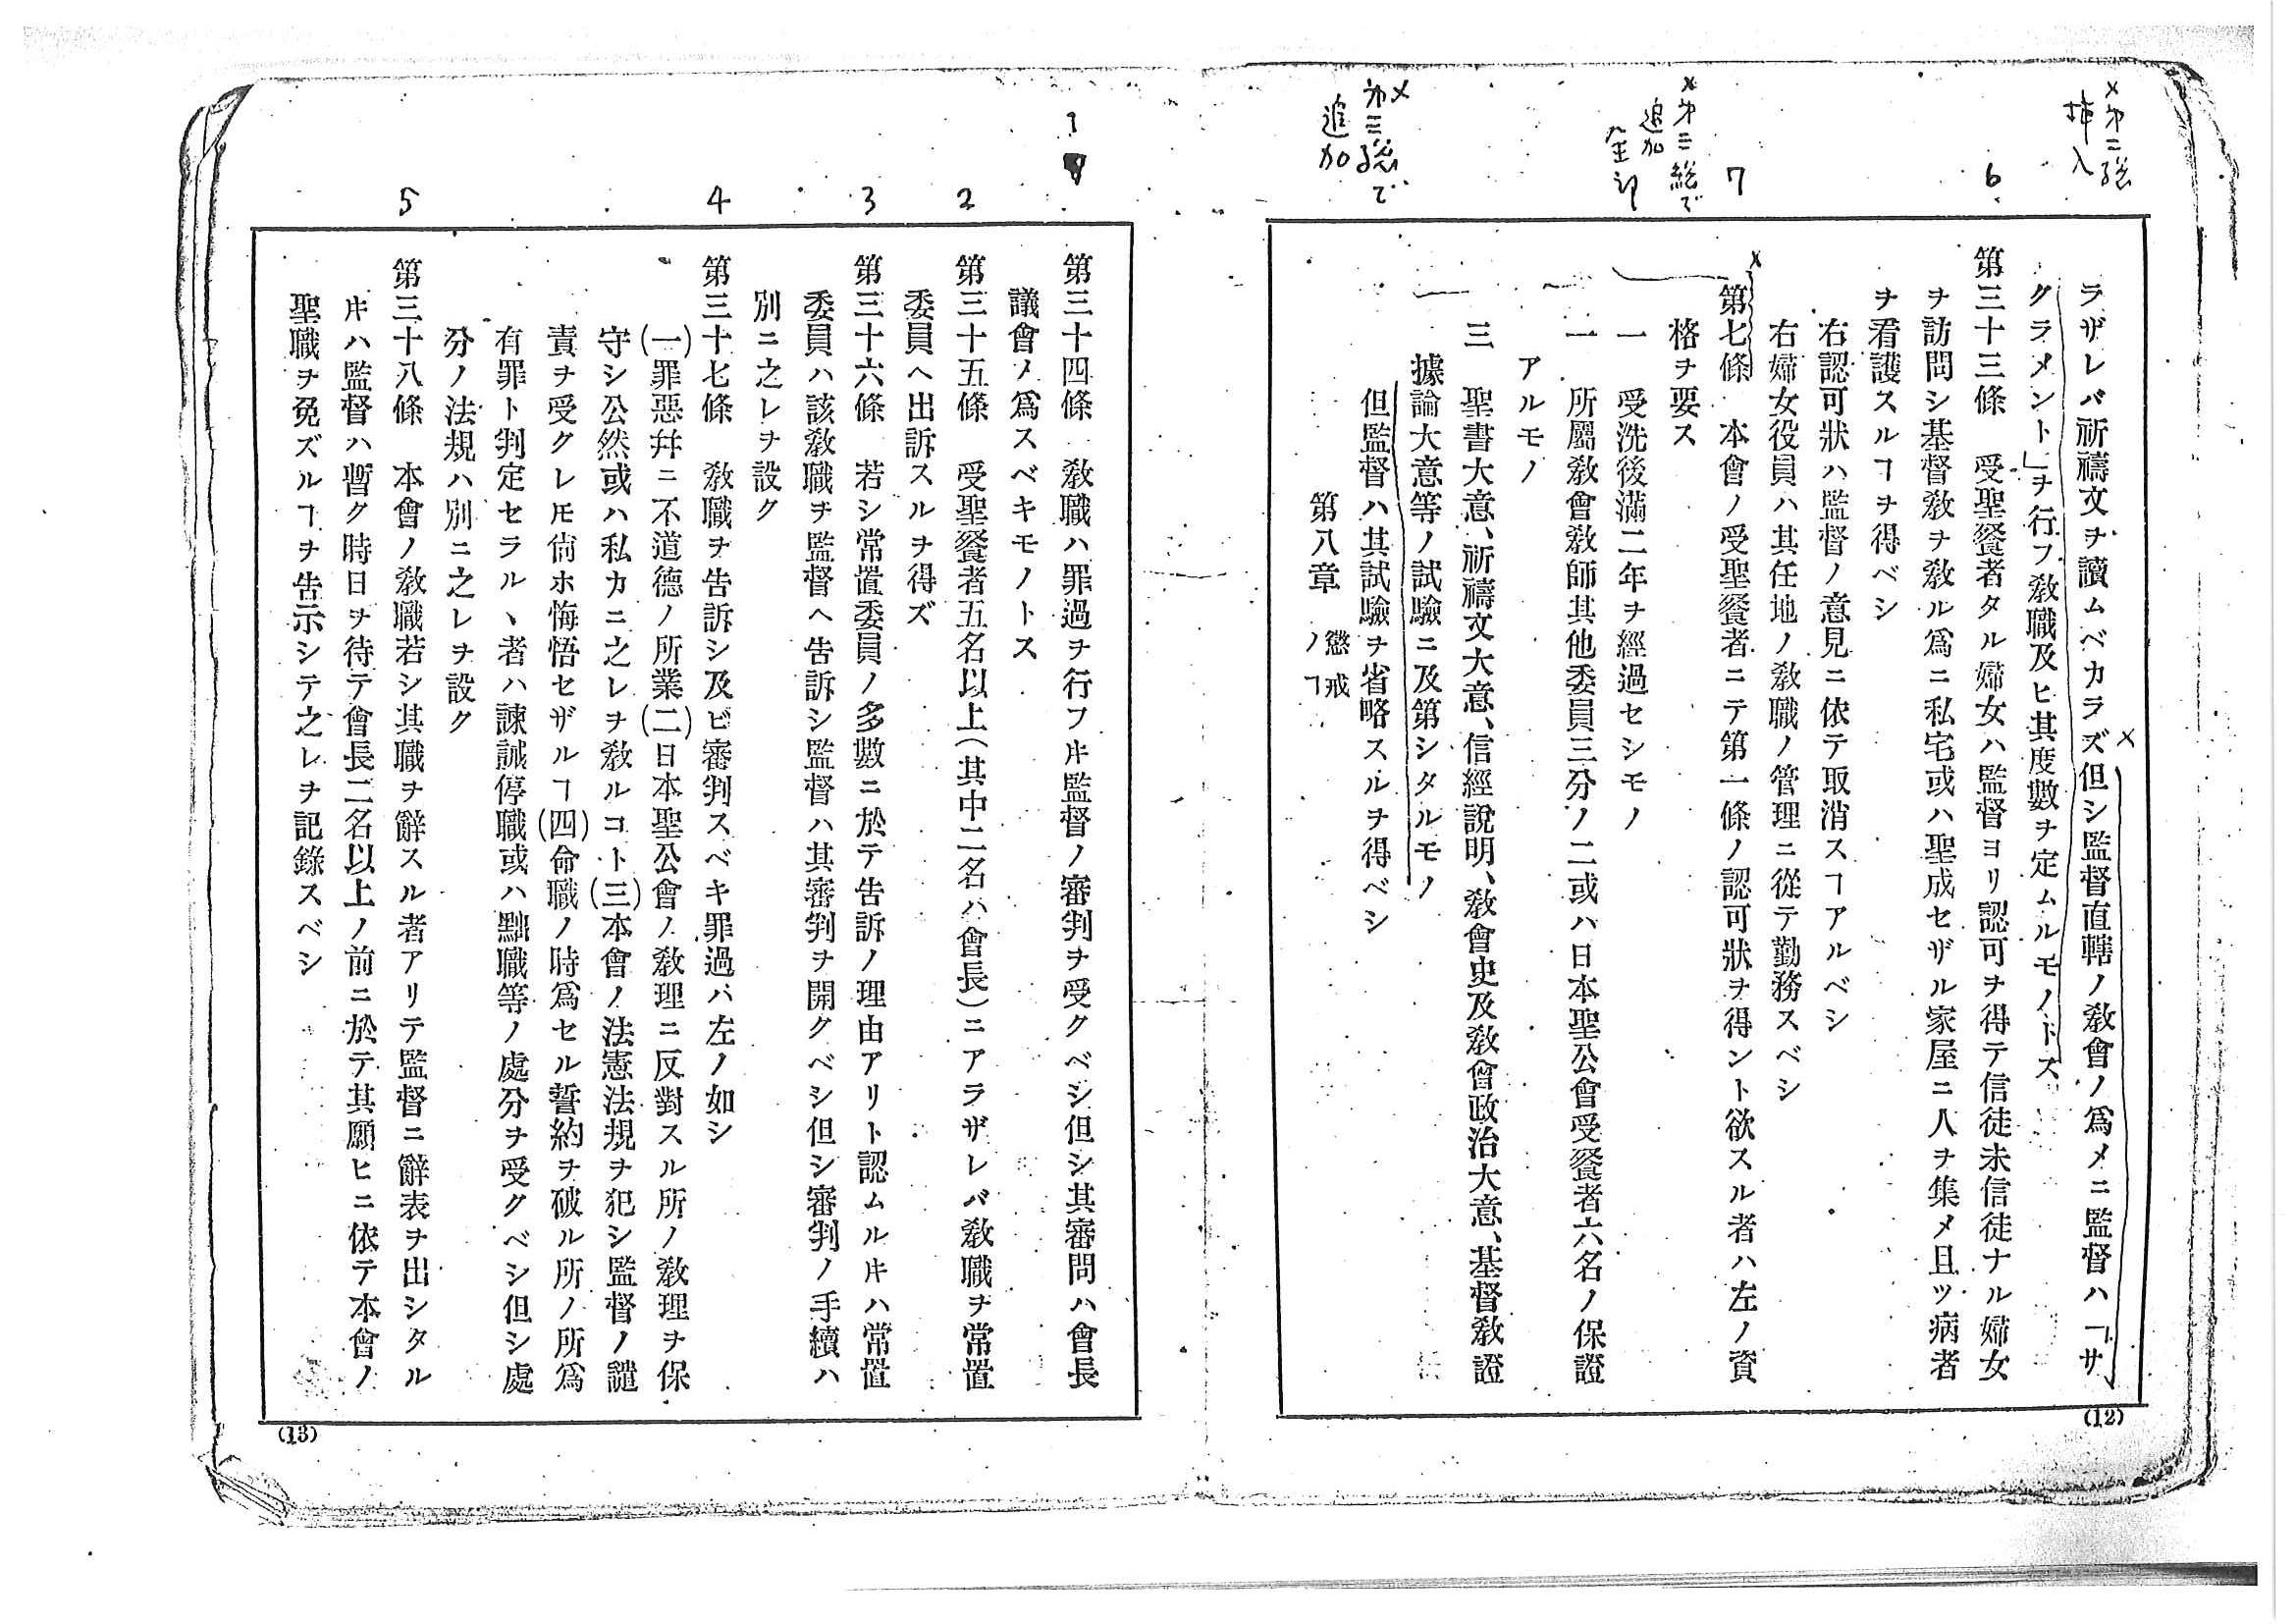 ×第二総
挿入
6
7
×第三総で
追加
全部
×第三総で
追加
ラザレバ祈禱文ヲ讀ムベカラズ但シ監督直轄ノ敎會ノ爲メニ監督ハ「サ
クラメント」ヲ行フ敎職及ヒ其度數ヲ定ムルモノトス
第三十三條 受聖餐者タル婦女ハ監督ヨリ認可ヲ得テ信徒未信徒ナル婦女
ヲ訪問シ基督敎ヲ敎ルル爲ニ私宅或ハ聖成セザル家屋ニ人ヲ集メ且ツ病者
ヲ看護スルヿヲ得ベシ
右認可狀ハ監督ノ意見ニ依テ取消スヿアルベシ
右婦女役員ハ其任地ノ敎職ノ管理ニ從テ勤務スベシ
第七條 本會ノ受聖餐者ニテ第一條ノ認可狀ヲ得ント欲スル者ハ左ノ資
格ヲ要ス
一 受洗後滿二年ヲ經過セシモノ
一 所屬敎會敎師其他委員三分ノ二或ハ日本聖公會受餐者六名ノ保證
アルモノ
三 聖書大意、祈禱文大意、信經說明、敎會史及敎會政治大意、基督敎證
據論大意等ノ試驗ニ及第シタルモノ
但監督ハ其試驗ヲ省略スルヲ得ベシ
第八章 懲戒ノヿ
(12)
1
2
3
4
5
第三十四條 敎職ハ罪過ヲ行フ𪜈監督ノ審判ヲ受クベシ但シ其審問ハ會長
議會ノ爲スベキモノトス
第三十五條 受聖餐者五名以上(其中二名ハ會長)ニアラザレバ敎職ヲ常置
委員ヘ出訴スルヲ得ズ
第三十六條 若シ常置委員ノ多數ニ於テ告訴ノ理由アリト認ムル𪜈ハ常置
委員ハ該敎職ヲ監督ヘ告訴シ監督ハ其審判ヲ開クベシ但シ審判ノ手續ハ
別ニ之レヲ設ク
第三十七條 敎職ヲ告訴シ及ビ審判スベキ罪過ハ左ノ如シ
(一)罪惡幷ニ不道德ノ所業(二)日本聖公會ノ敎理ニ反對スル所ノ敎理ヲ保
守シ公然或ハ私カニ之レヲ敎ルコト(三)本會ノ法憲法規ヲ犯シ監督ノ譴
責ヲ受クレ𪜈尙ホ悔悟セザルヿ(四)命職ノ時爲セル誓約ヲ破ル所ノ所爲
有罪ト判定セラルヽ者ハ諫誡停職或ハ黜職等ノ處分ヲ受クベシ但シ處
分ノ法規ハ別ニ之レヲ設ク
第三十八條 本會ノ敎職若シ其職ヲ辭スル者アリテ監督ニ辭表ヲ出シタル
𪜈ハ監督ハ暫ク時日ヲ待テ會長二名以上ノ前ニ於テ其願ヒニ依テ本會ノ
聖職ヲ免ズルヿヲ告示シテ之レヲ記錄スベシ
(13)